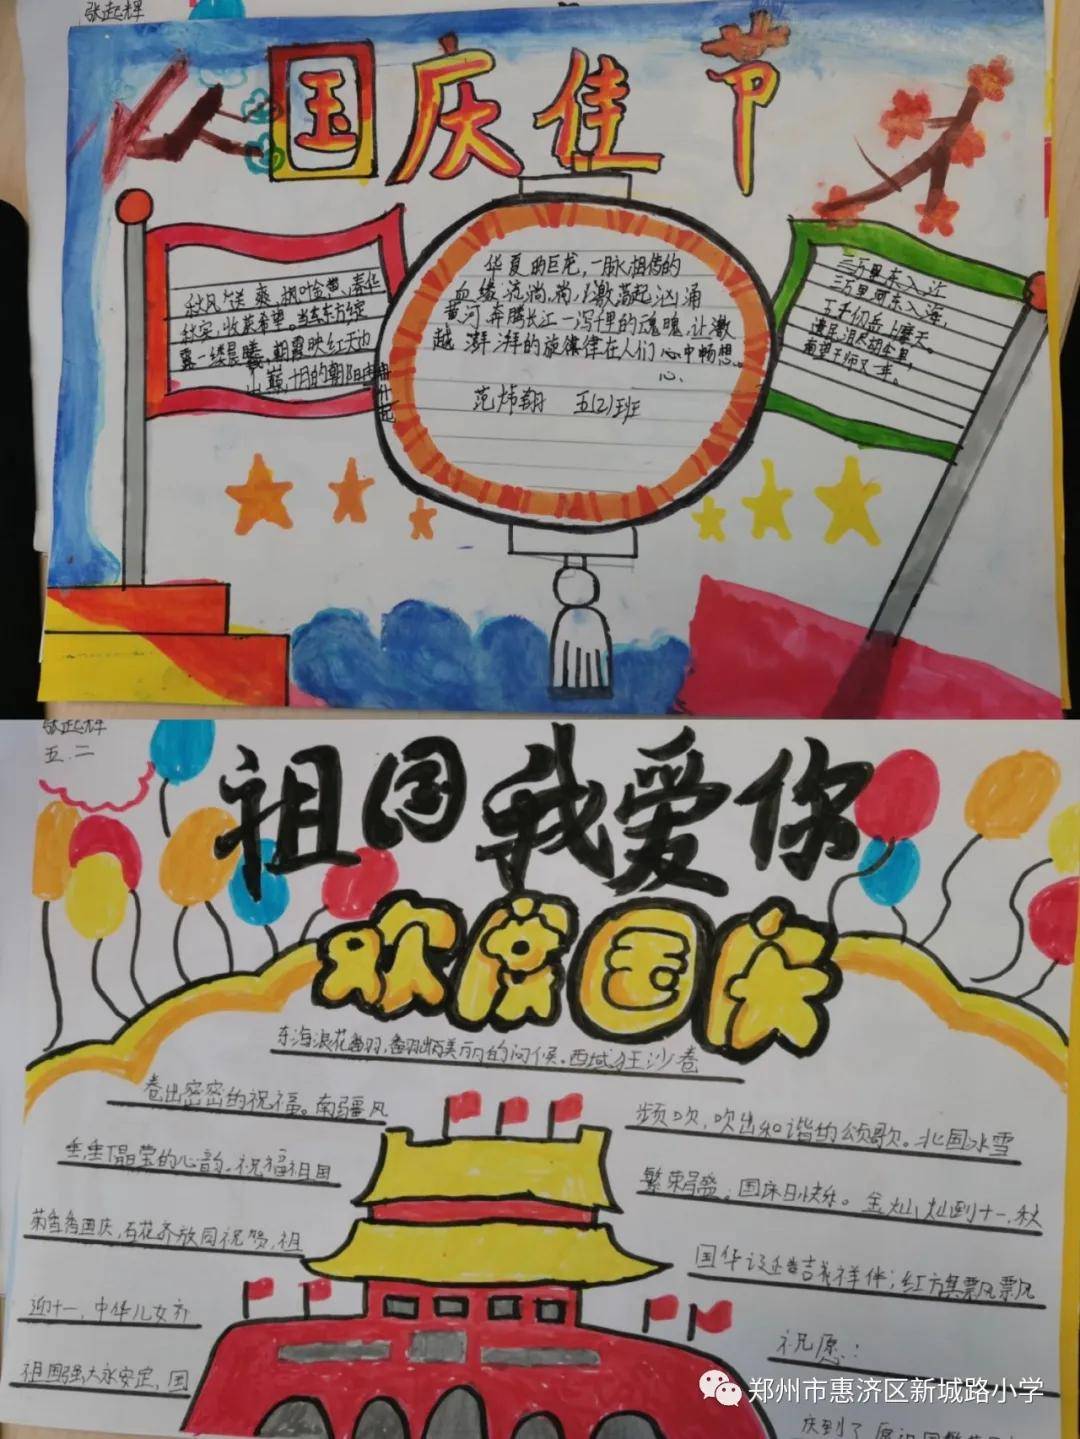 张起辉
国庆佳节
秋风气爽,枫叶金黄,春华
秋实,收获希望。当东方绽
露一缕晨曦,朝霞映红天边
山巅,十月的朝阳冉冉升起
华夏的巨龙,一脉相传的
血缘流淌。淌,激荡起汹涌
黄河奔腾长江一泻千里的魂魄,让激
越澎湃的旋律在人们心中畅想。
心、
范炜翔 五(2)班
三万里东入,辽
三万里河东入海,
五千仞岳上摩天。
遗民泪尽胡尘里,
南望王师又一年。
张起辉
五.二
祖国我爱你
欢度国庆
东海浪花翻羽,翻出炳美丽的问候。西域狂沙卷
卷出密密的祝福。南疆风
频吹,吹出和谐的颂歌。北国冰雪
垂垂晶莹的心韵。祝福祖国
繁荣昌盛。国庆日快乐。金灿灿到十一,秋
菊飘香国庆,百花齐放同祝贺,祖
国华诞吉祥伴;红旗飘飘
迎十一,中华儿女齐
祝愿:
祖国强大永安定,国
庆到了愿祖国繁荣
郑州市惠济区新城路小学